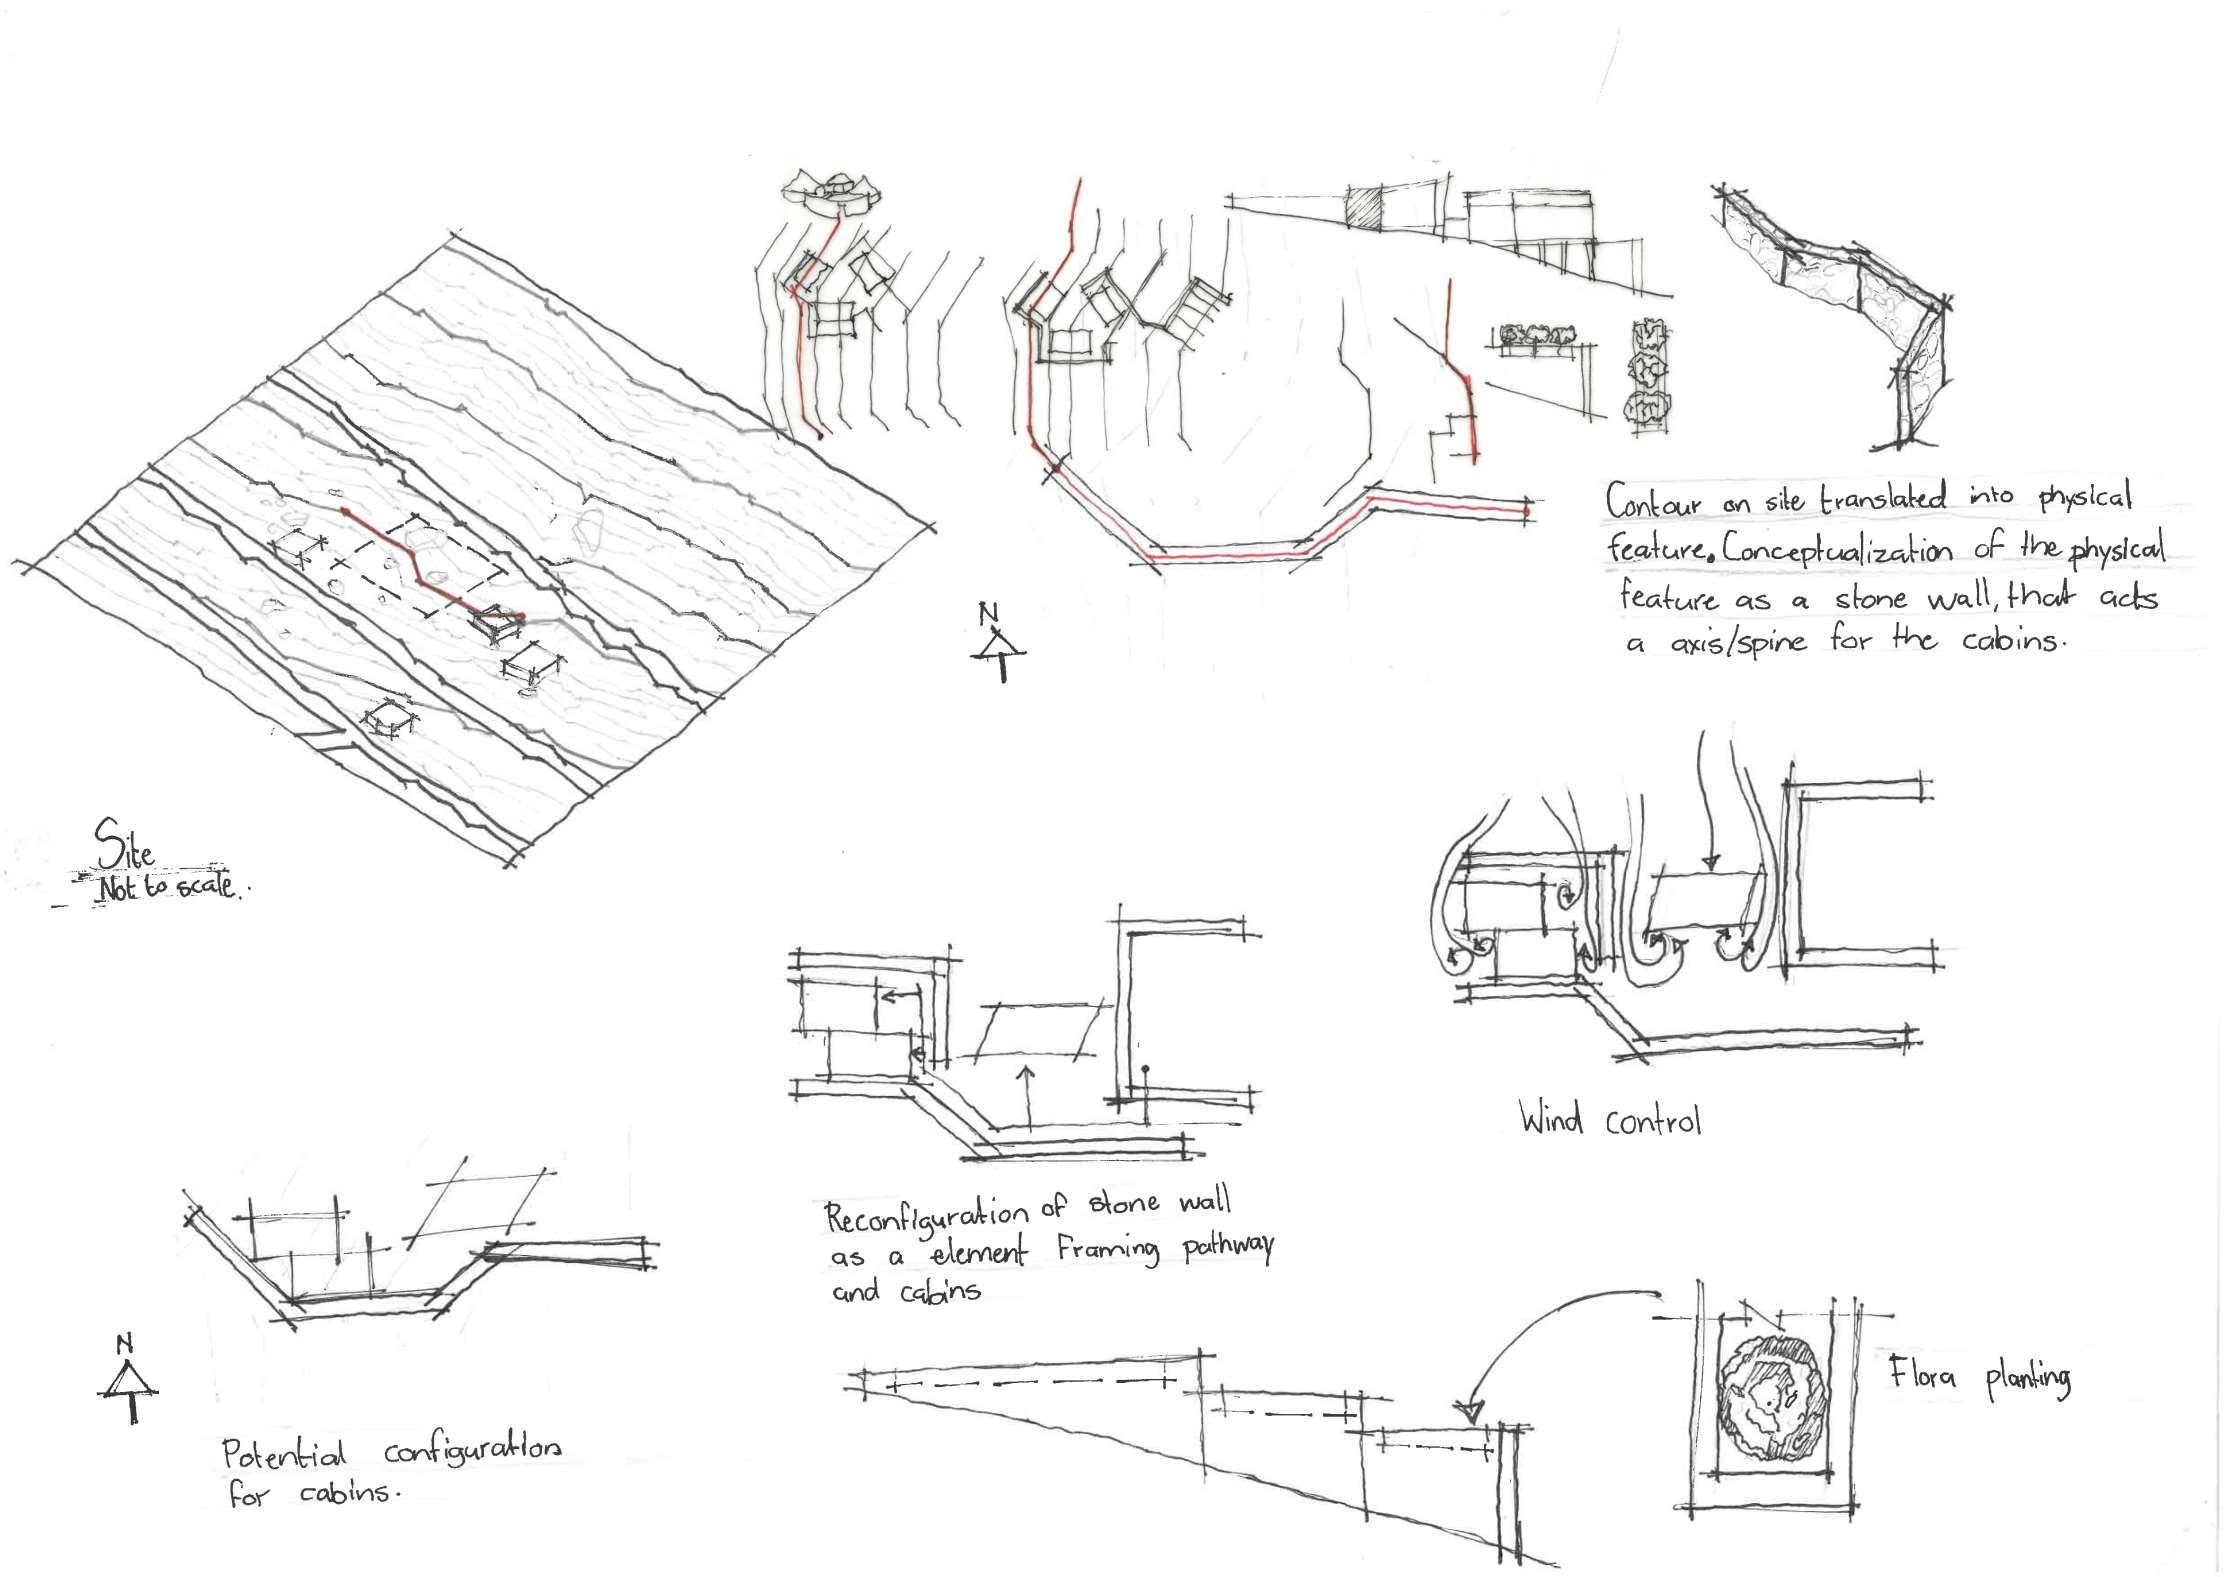 Contour on site translated into physical
feature. Conceptualization of the physical
feature as a stone wall, that acts
a axis/spine for the cabins.
N
Site
Not to scale.
Wind control
Reconfiguration of stone wall
as a element Framing pathway
and cabins
N
Potential configuration
for cabins.
Flora planting